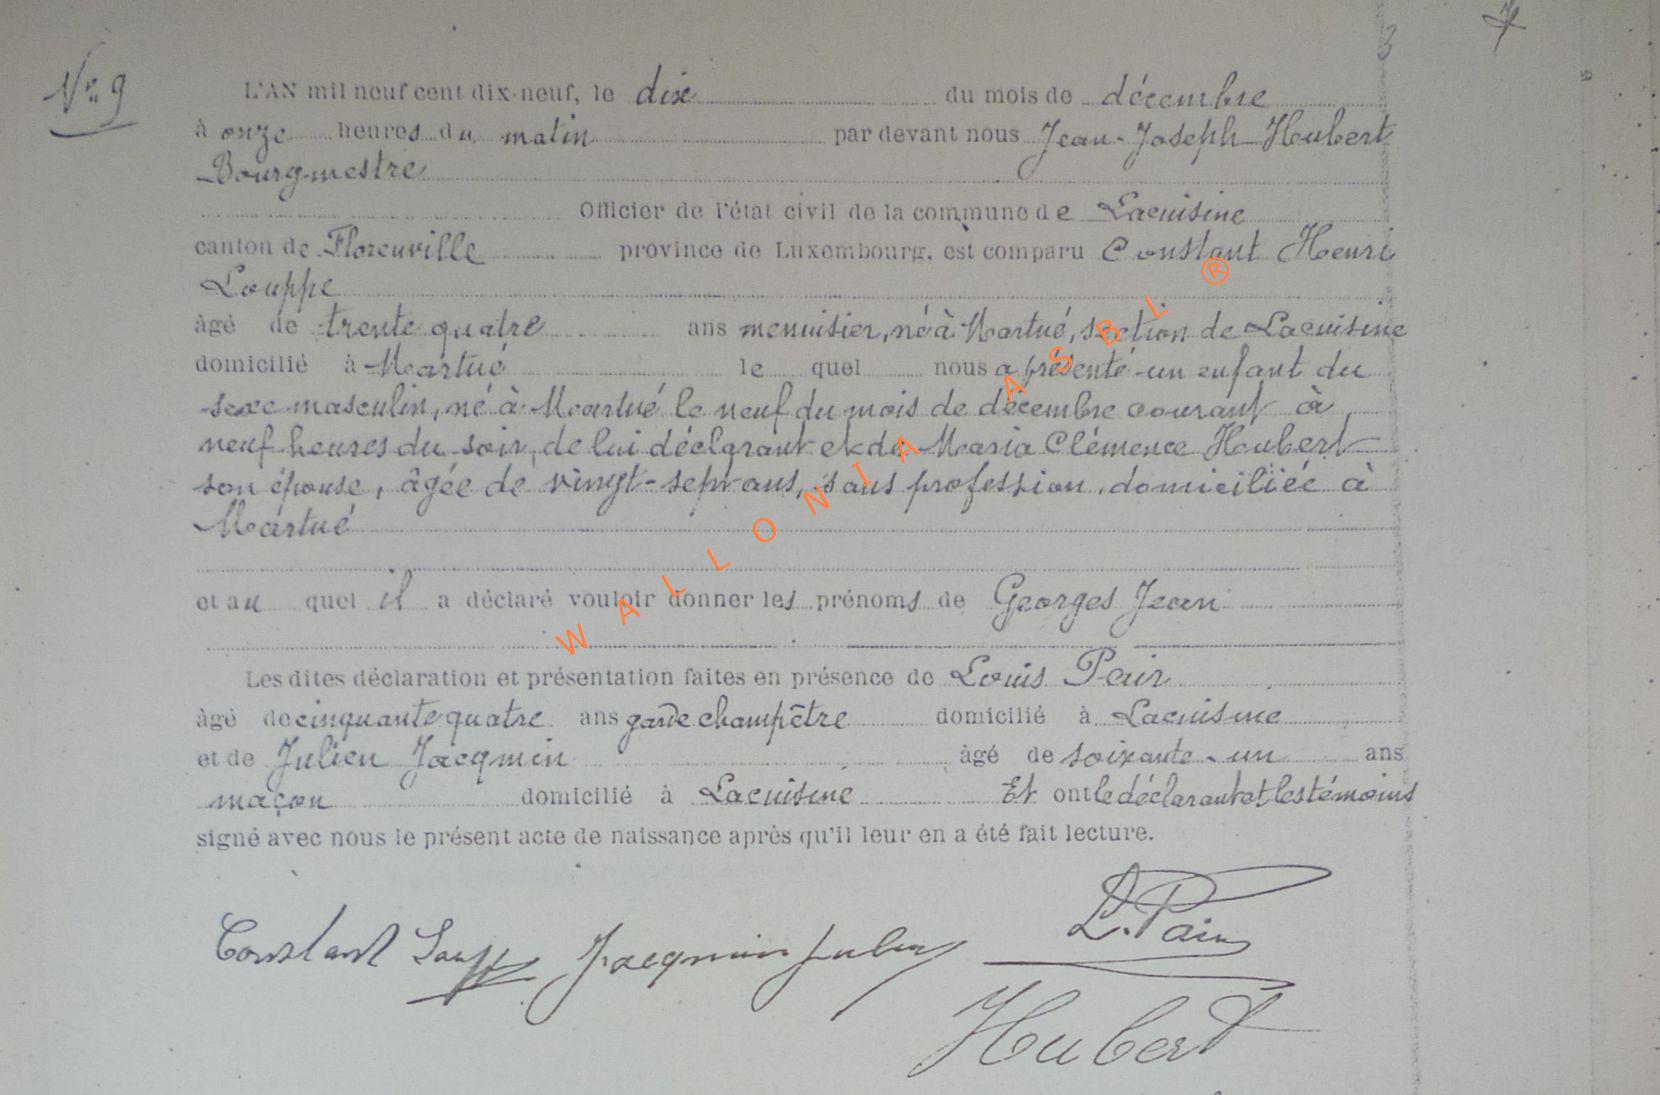 3
N° 9
L'AN mil neuf cent dix-neuf, le dix du mois de décembre
à onze heures du matin par devant nous Jean-Joseph Hubert
Bourgmestre
Officier de l'état civil de la commune de Lacuisine
canton de Florenville province de Luxembourg, est comparu Constant Henri
Louppe
âgé de trente quatre ans menuisier, né à Martué, section de Lacuisine
domicilié à Martué le quel nous a présenté un enfant du
sexe masculin, né à Martué le neuf du mois de décembre courant à
neuf heures du soir, de lui déclarant et de Maria Clémence Hubert
son épouse, âgée de vingt-sept ans, sans profession, domiciliée à
Martué
et au quel il a déclaré vouloir donner les prénoms de Georges Jean
Les dites déclaration et présentation faites en présence de Louis Pair
âgé de cinquante quatre ans garde champêtre domicilié à Lacuisine
et de Julien Jacqmin âgé de soixante-un ans
maçon domicilié à Lacuisine Et ont le déclarant et les témoins
signé avec nous le présent acte de naissance après qu'il leur en a été fait lecture.
Constant Loupp Jacqmin Julien L. Pair
Hubert
WALLONIA ASBL ®